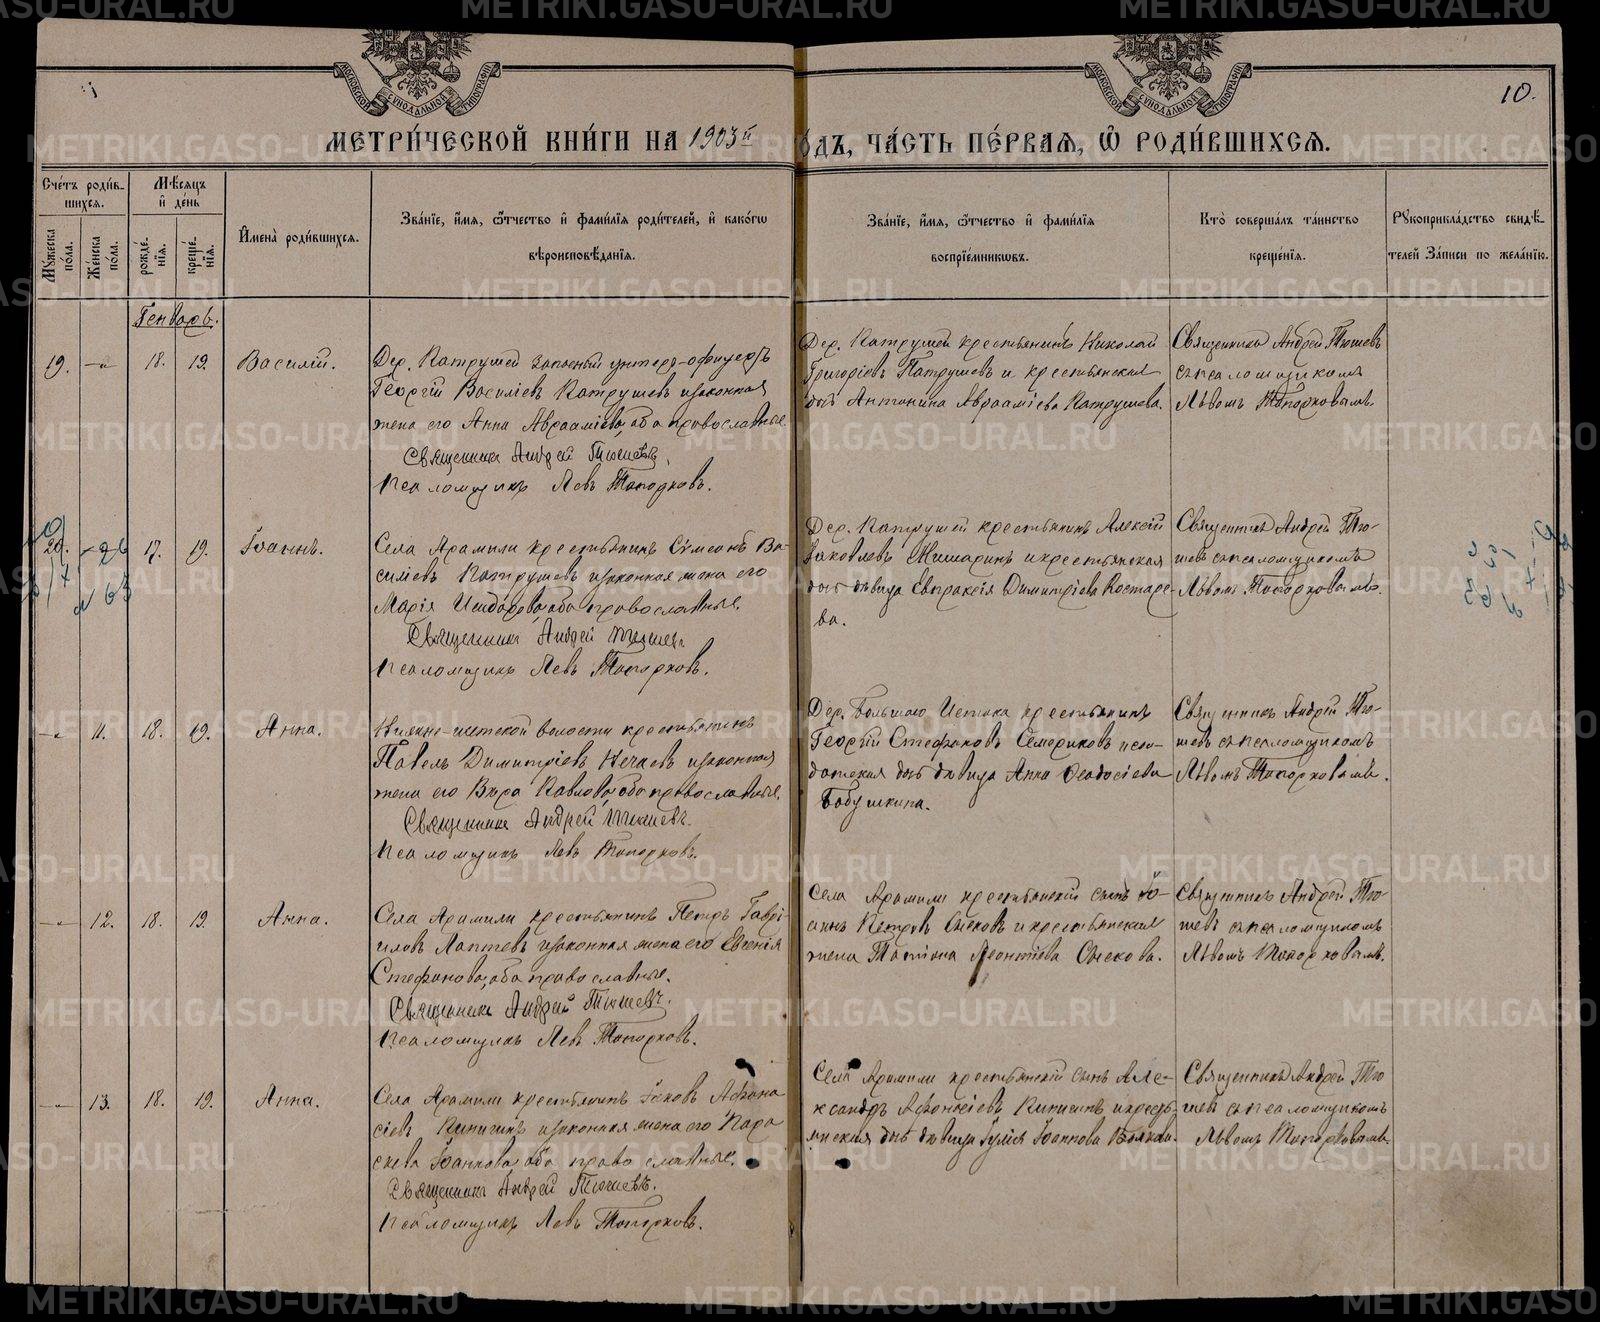 10.
МЕТРИ́ЧЕСКОЙ КНИ́ГИ НА 1903й ГО́ДЪ, ЧА́СТЬ ПЕ́РВАѦ, Ѽ РОДИ́ВШИХСѦ.
Сче́тъ роди́вшихсѧ.
Мꙋ́жеска по́ла.
Же́нска по́ла.
Мѣ́сѧцъ и҆ де́нь
рожде́нїѧ.
креще́нїѧ.
И҆мена̀ роди́вшихсѧ.
Зва́нїе, и҆́мѧ, ѻ҆́тчество и҆ фами́лїѧ роди́телей, и҆ како́гѡ
вѣроисповѣ́данїѧ.
Зва́нїе, и҆́мѧ, ѻ҆́тчество и҆ фами́лїѧ
воспрїе́мникѡвъ.
Кто̀ соверша́лъ та́инство
креще́нїѧ.
Рꙋкоприкла́дство свидѣ́телей за́писи по жела́нїю.
Генварь.
19. 18. 19. Василій.
Дер. Патрушей запасный унтеръ-офицеръ
Георгій Василіевъ Патрушевъ и законная
жена его Анна Авраамієва, оба православные.
Священникъ Андрей Тюшевъ.
Псаломщикъ Левъ Топорковъ.
Дер. Патрушей крестьянинъ Николай
Григоріевъ Патрушевъ и крестьянская
дочь Антонина Авраамієва Патрушева.
Священникъ Андрей Тюшевъ
съ псаломщикомъ
Львомъ Топорковымъ.
20. 17. 19. Іоаннъ.
Села Арамили крестьянинъ Сѵмеонъ Ва-
силіевъ Патрушевъ и законная жена его
Марія Исидорова, оба православные.
Священникъ Андрей Тюшевъ.
Псаломщикъ Левъ Топорковъ.
Дер. Патрушей крестьянинъ Алексій
Іаковлевъ и крестьянская
дочь дѣвица Евпраксія Димитріева Костаре-
ва.
Священникъ Андрей Тю-
шевъ съ псаломщикомъ
Львомъ Топорковымъ.
11. 18. 19. Анна.
волости крестьянинъ
Павелъ Димитріевъ Нечаевъ и законная
жена его Вѣра Павлова, оба православные.
Священникъ Андрей Тюшевъ.
Псаломщикъ Левъ Топорковъ.
Дер. Большаго Истока крестьянинъ
Георгій Стефановъ Семериковъ и сол-
датская дочь дѣвица Анна Ѳеодосіева
Бабушкина.
Священникъ Андрей Тю-
шевъ съ псаломщикомъ
Львомъ Топорковымъ.
12. 18. 19. Анна.
Села Арамили крестьянинъ Петръ Гаврі-
иловъ Лаптевъ и законная жена его Евгенія
Стефанова, оба православные.
Священникъ Андрей Тюшевъ.
Псаломщикъ Левъ Топорковъ.
Села Арамили крестьянскій сынъ Іо-
аннъ Петровъ и крестьянская
жена Татіана Леонтіева
Священникъ Андрей Тю-
шевъ съ псаломщикомъ
Львомъ Топорковымъ.
13. 18. 19. Анна.
Села Арамили крестьянинъ Іаковъ Аѳана-
сіевъ и законная жена его Пара-
скева Іоаннова, оба православные.
Священникъ Андрей Тюшевъ.
Псаломщикъ Левъ Топорковъ.
Села Арамили крестьянскій сынъ Але-
ксандръ Аѳанасіевъ и кресть-
янская дочь дѣвица Іулія Іоаннова
Священникъ Андрей Тю-
шевъ съ псаломщикомъ
Львомъ Топорковымъ.
METRIKI.GASO-URAL.RU